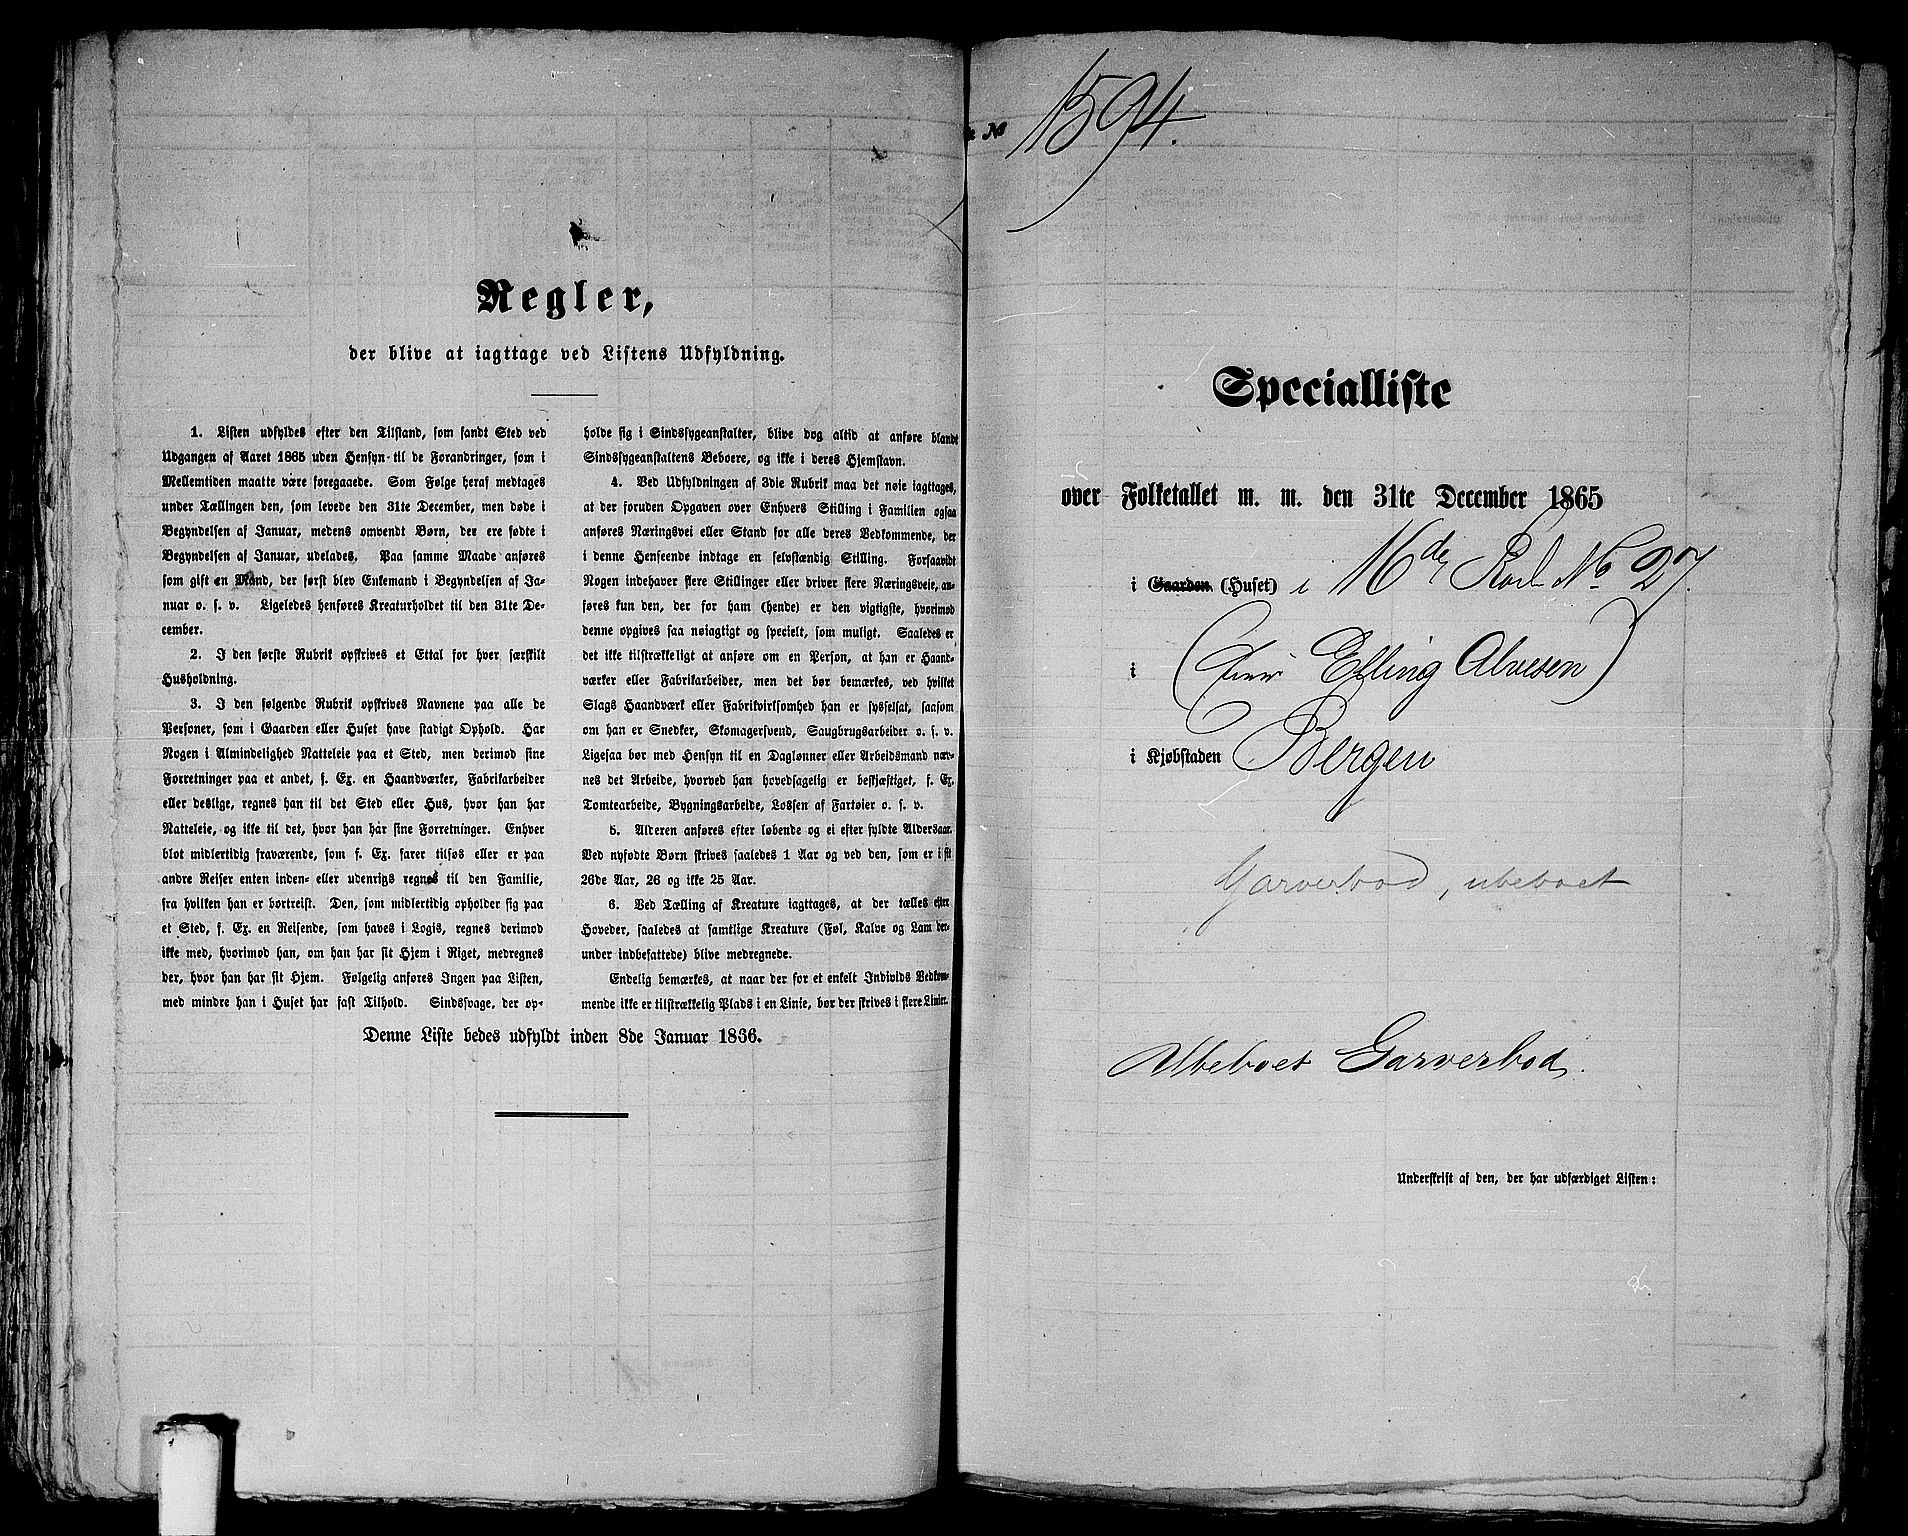 Regler,
der blive at iagttage ved Listens Udfyldning.
1. Listen udfyldes efter den Tilstand, som fandt Sted ved
Udgangen af Aaret 1865 uden Hensyn til de Forandringer, som i
Mellemtiden maatte være foregaaede. Som Følge heraf medtages
under Tællingen den, som levede den 31te December, men døde i
Begyndelsen af Januar, medens omvendt Børn, der ere fødte i
Begyndelsen af Januar, udelades. Paa samme Maade anføres
som gift en Mand, der først blev Enkemand i Begyndelsen af Ja-
nuar o. s. v. Ligeledes henføres Kreaturholdet til den 31te De-
cember.
2. I den første Rubrik opskrives et Ettal for hver særskilt
Husholdning.
3. I den følgende Rubrik opskrives Navnene paa alle de
Personer, som i Gaarden eller Huset have stadigt Ophold. Har
Nogen i Almindelighed Natteleie paa et Sted, men derimod sine
Forretninger paa et andet, f. Ex. en Haandværker, Fabrikarbeider
eller deslige, regnes han til det Sted eller Hus, hvor han har
Natteleie, og ikke til det, hvor han har sine Forretninger. Enhver
blot midlertidig fraværende, som f. Ex. farer tilsøs eller er paa
andre Reiser enten inden- eller udenrigs regnes til den Familie,
fra hvilken han er bortreist. Den, som midlertidig opholder sig paa
et Sted, f. Ex. en Reisende, som haves i Logis, regnes derimod
ikke med, hvorimod han, om han har sit Hjem i Riget, medregnes
der, hvor han har sit Hjem. Følgelig anføres Ingen paa Listen,
med mindre han i Huset har fast Tilhold. Sindssvage, der op-
holde sig i Sindssygeanstalter, blive dog altid at anføre blandt
Sindssygeanstaltens Beboere, og ikke i deres Hjemstavn.
4. Ved Udfyldningen af 3die Rubrik maa det nøie iagttages,
at der foruden Opgaven over Enhvers Stilling i Familien ogsaa
anføres Næringsvei eller Stand for alle deres Vedkommende, der
i denne Henseende indtage en selvstændig Stilling. Forsaavidt
Nogen indehaver flere Stillinger eller driver flere Næringsveie, an-
føres kun den, der for ham (hende) er den vigtigste, hvorimod
denne opgives saa nøiagtigt og specielt, som muligt. Saaledes er
det ikke tilstrækkeligt at anføre om en Person, at han er Haand-
værker eller Fabrikarbeider, men det bør bemærkes, ved hvilket
Slags Haandværk eller Fabrikvirksomhed han er sysselsat, saasom
om han er Snedker, Skomagersvend, Saugbrugsarbeider o. s. v.
Ligesaa bør med Hensyn til en Daglønner eller Arbeidsmand næv-
nes det Arbeide, hvorved han hovedsagelig er beskjæftiget, f. Ex.
Tomtearbeide, Bygningsarbeide, Lossen af Fartøier o. s. v.
5. Alderen anføres efter løbende og ei efter fyldte Aldersaar.
Ved nyfødte Børn skrives saaledes 1 Aar og ved den, som er i sit
26de Aar, 26 og ikke 25 Aar.
6. Ved Tælling af Kreature iagttages, at der tælles efter
Hoveder, saaledes at samtlige Kreature (Føl, Kalve og Lam der-
under indbefattede) blive medregnede.
Endelig bemærkes, at naar der for et enkelt Individs Vedkom-
mende ikke er tilstrækkelig Plads i en Linie, bør der skrives i flere Linier.
Denne Liste bedes udfyldt inden 8de Januar 1866.
№ 1594.
Specialliste
over Folketallet m. m. den 31te December 1865
i Gaarden (Huset) i 16de Rode No 27.
i (Eier Elling Alvesen)
i Kjøbstaden Bergen
Garverbod, ubeboet
Ubeboet Garverbod.
Underskrift af den, der har udfærdiget Listen: